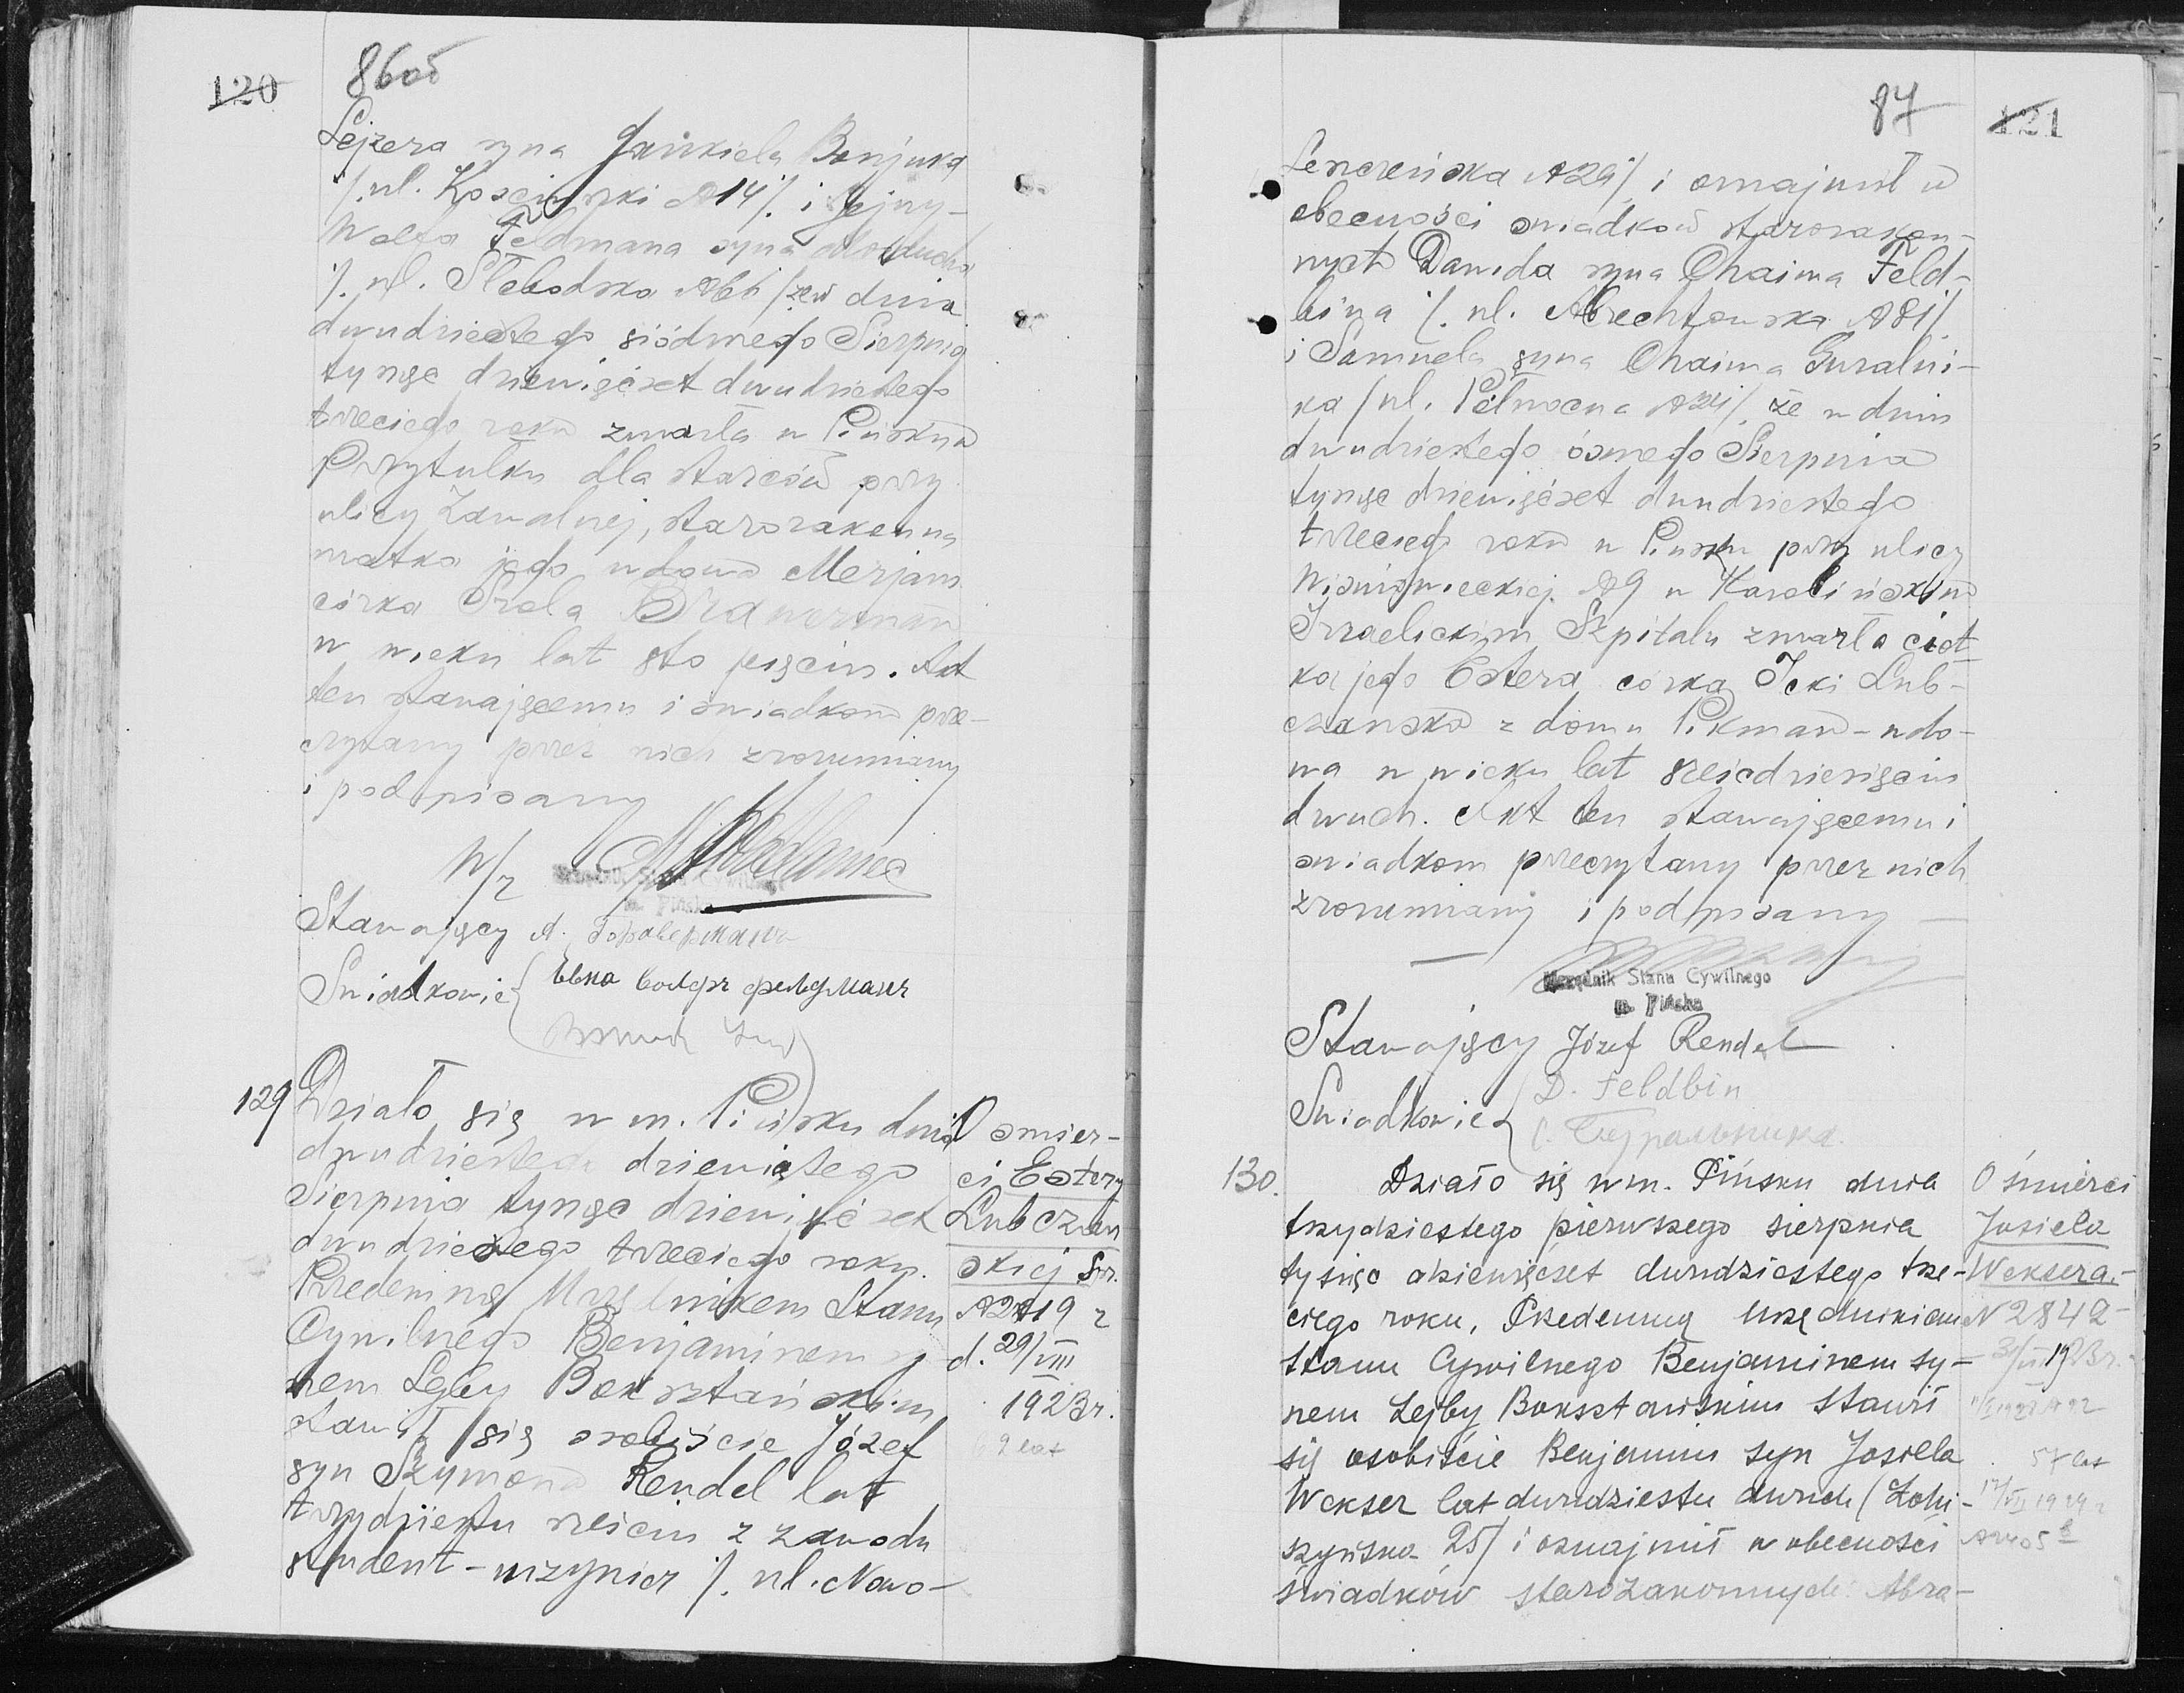 120
86об
Lejzera syna Jankiela Bonjuka
/. ul. Kosciuszki № 14/. i Jejny-
Wolfa Feldmana syna Morducha
/. ul. Słobodska № 66/ że w dniu
dwudziestego siódmego Sierpnia
tysiąc dziewięćset dwudziestego
trzeciego roku zmarła w Pińsku w
Przytułku dla starców przy
ulicy Zawalnej, starozakonna
matka jego wdowa Merjam
córka Srola Browerman
w wieku lat sto pięciu. Akt
ten stawającemu i świadkom prze-
czytany przez nich zrozumiany
i podpisany
W/z
Urzędnik Stanu Cywilnego
m. Pińska
Stawający A.
Swiadkowie Евна Вольфъ Фельдманъ
129 Działo się w m. Pińsku dnia
dwudziestego dziewiątego
Sierpnia tysiąc dziewięćset
dwudziestego trzeciego roku.
Przedemną Urzędnikem Stanu
Cywilnego Benjaminem sy-
nem Lejby Boksztańskim
stawił się osobiście Józef
syn Szymona Rendel lat
trzydziestu sześciu z zawodu
student-inżynier /. ul. Nowo-
O śmier-
ci Estery
Lubczań
skiej
d. 29/VIII
1923 r.
62 lat
87
121
Lenczeńska № 29/ i oznajmił w
obecności świadków starozakon-
nych Dawida syna Chaima Feld-
bina /. ul. Albrechtowska № 81/
i Samuela syna Chaima Guralni-
ka / ul. Północna № 24/ że w dniu
dwudziestego ósmego Sierpnia
tysiąc dziewięćset dwudziestego
trzeciego roku w Pińsku przy ulicy
Wiśniowieckiej № 9 w Karolińskim
Izraelickim Szpitalu zmarła ciot
ka jego Estera córka Icki Lub-
czanska z domu Pikman - wdo-
wa w wieku lat sześćdziesięciu
dwuch. Akt ten stawającemu i
świadkom przeczytany przez nich
zrozumiany i podpisany
Urzędnik Stanu Cywilnego
m. Pińska
Stawający Józef Rendel
Swiadkowie D. Feldbin
С. Гуральникъ
130. Działo się w m. Pińsku dnia
trzydziestego pierwszego sierpnia
tysiąc dziewięćset dwudziestego trze-
ciego roku, Przedemną urzędnikiem
stanu Cywilnego Benjaminem sy-
nem Lejby Boksztańskim stawił
się osobiście Benjamin syn Josiela
Wekser lat dwudziestu dwuch / Łohi-
szyńska 25/ i oznajmił w obecności
świadków starozakonnych: Abra-
O śmierci
Josiela
Weksera.-
N 2842
57 lat